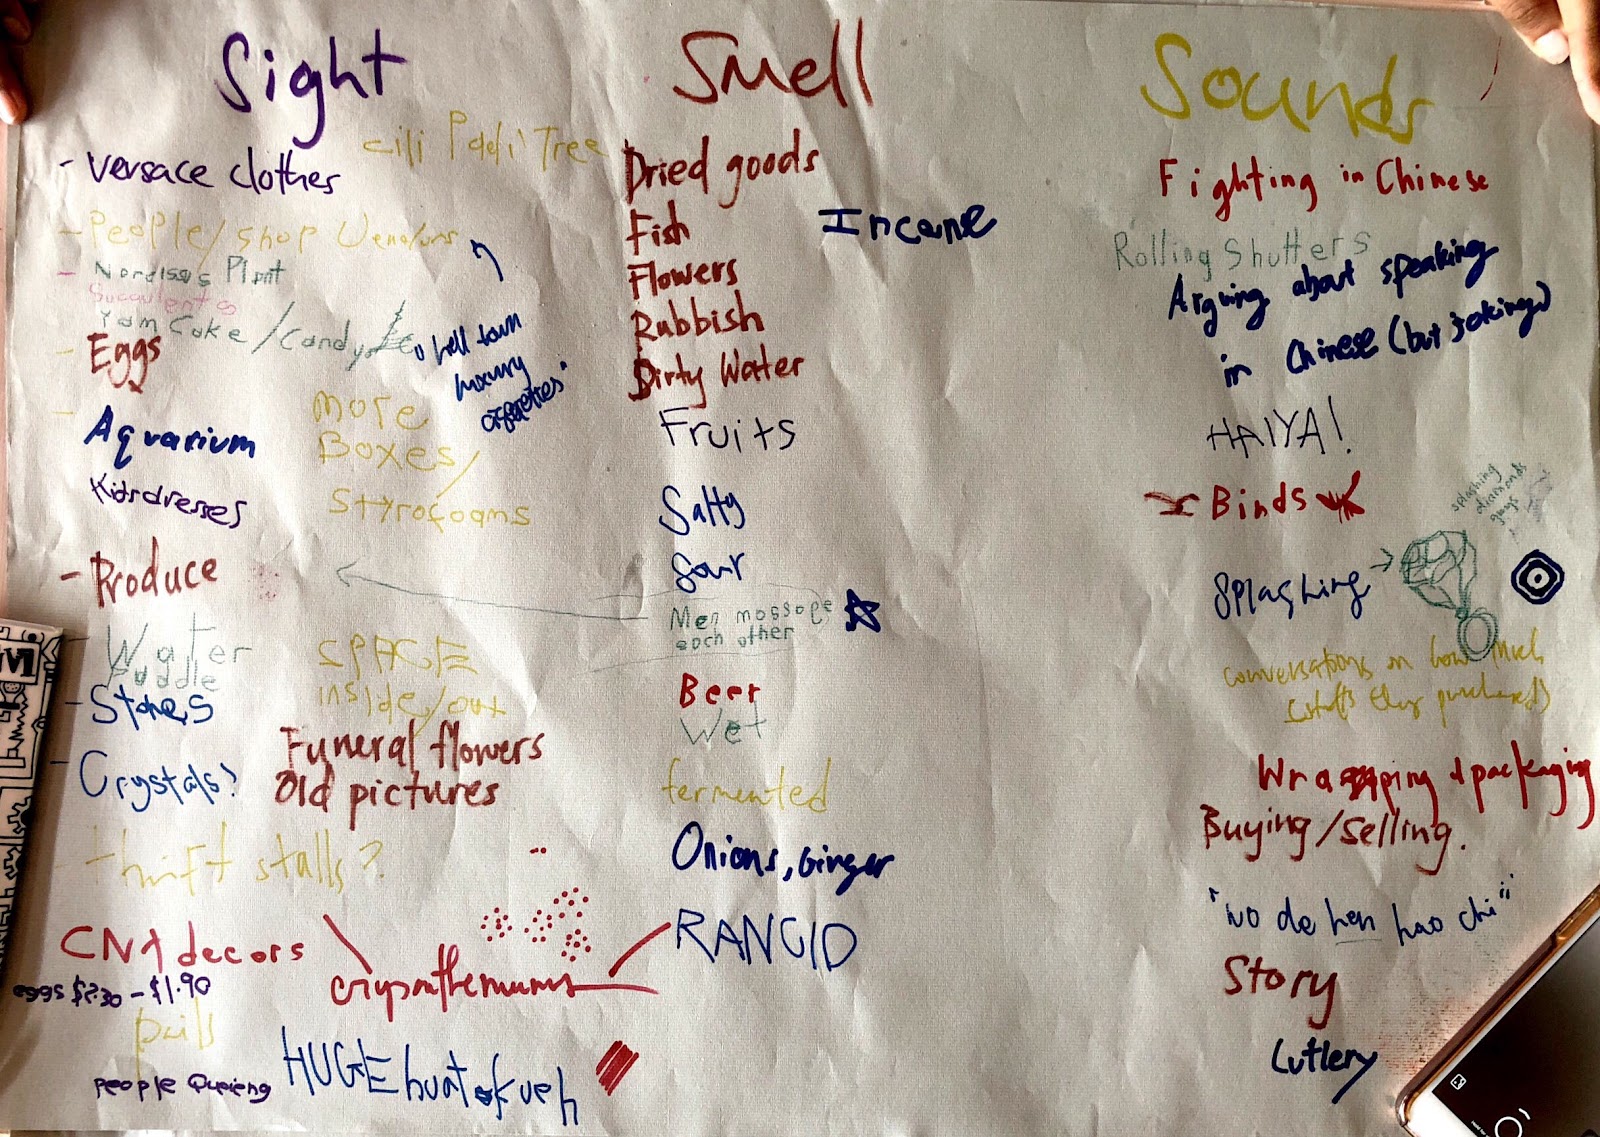 Sight
cili Padi Tree
- Versace clothes
- People/shop Vendors
- Nordissos Plant
Succulents
Yam Cake/Candy
- Eggs
"hell town
luxury
cigarettes"
- Aquarium
Kidsdresses
More
Boxes/
Styrofoams
- Produce
Water
Puddle
- Stones
SPACE
inside/out
- Crystals?
Funeral flowers
Old pictures
- thrift stalls?
CNY decors
eggs $2.30 - $1.90
pails
people Queieng
crysanthemums
HUGE huat kueh
Smell
Dried goods
Fish
Incense
Flowers
Rubbish
Dirty Water
Fruits
Salty
Sour
Men mossage
each other
Beer
Wet
fermented
Onions, Ginger
RANCID
Sounds
Fighting in Chinese
Rolling Shutters
Arguing about speaking
in Chinese (but jokingly)
HAIYA!
Binds
Splashing
splashing
diamonds
guys
conversations on how much
(stuffs they purchased)
Wrapping & packaging
Buying/selling.
"wo de hen hao chi"
Story
Cutlery